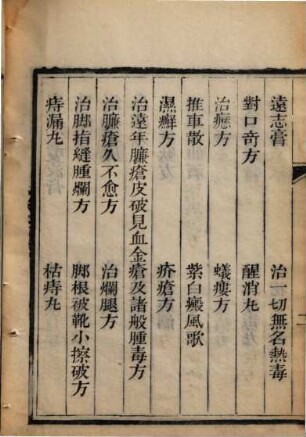 遠志膏　治一切無名熱毒
對口奇方　醒消丸
治癧方　蟻瘻方
推車散　紫白癜風歌
濕癬方　疥瘡方
治遠年臁瘡皮破見血金瘡及諸般腫毒方
治臁瘡久不愈方　治爛腿方
治脚指縫腫爛方　脚根被靴小擦破方
痔漏丸　枯痔丸